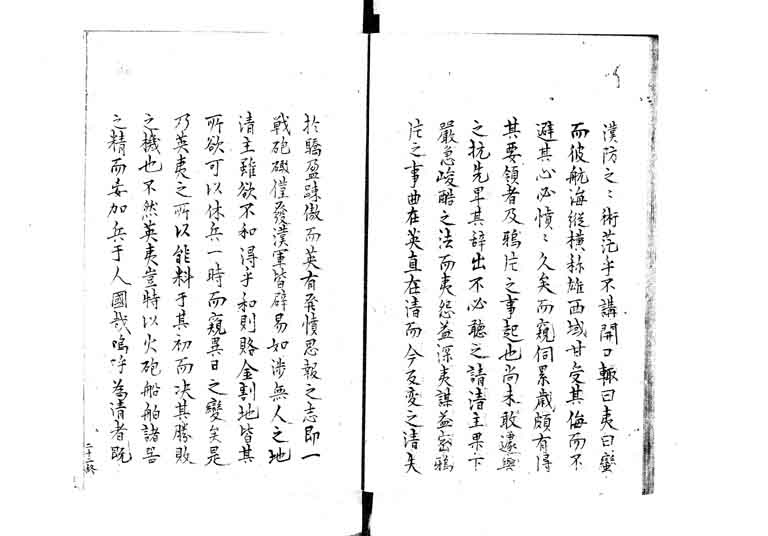 漢防之〻術茫乎不講開口輙曰夷曰蠻
而彼航海縱横称雄西域甘受其侮而不
避其心必憤〻久矣而窺伺累歲頗有得
其要領者及鴉片之事起也尚未敢遽與
之抗先卑其辞出不必聽之請清主果下
嚴急峻酷之法而夷怨益深夷謀益密鴉
片之事曲在英直在清而今反変之清失
於驕盈踈傲而英有発憤思報之志即一
戰砲礮僅發漢軍皆辟易如渉無人之地
清主雖欲不和得乎和則賂金割地皆其
所欲可以休兵一時而窺異日之變矣是
乃英夷之所以能料于其初而决其勝敗
之機也不然英夷豈特以火砲船舶諸器
之精而妄加兵于人國哉嗚呼為清者既
二十二終